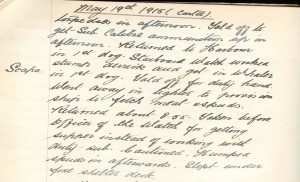 May 19th 1915 (contd)
torpedoes in afternoon. Told off to
get Sub Calibre ammunition up in
afternoon. Returned to Harbour
in 1st dog. Starboard Watch worked
stumps aside and got in
in 1st dog. Told off for duty hand.
Scapa.
Went away in lighter to provision
ship to fetch meat & spuds.
Returned about 8.00. Taken before
Officer of the Watch for getting
supper instead of working with
duty sub. Cautioned. Humped
spuds in afterwards. Slept under
fore shelter deck.